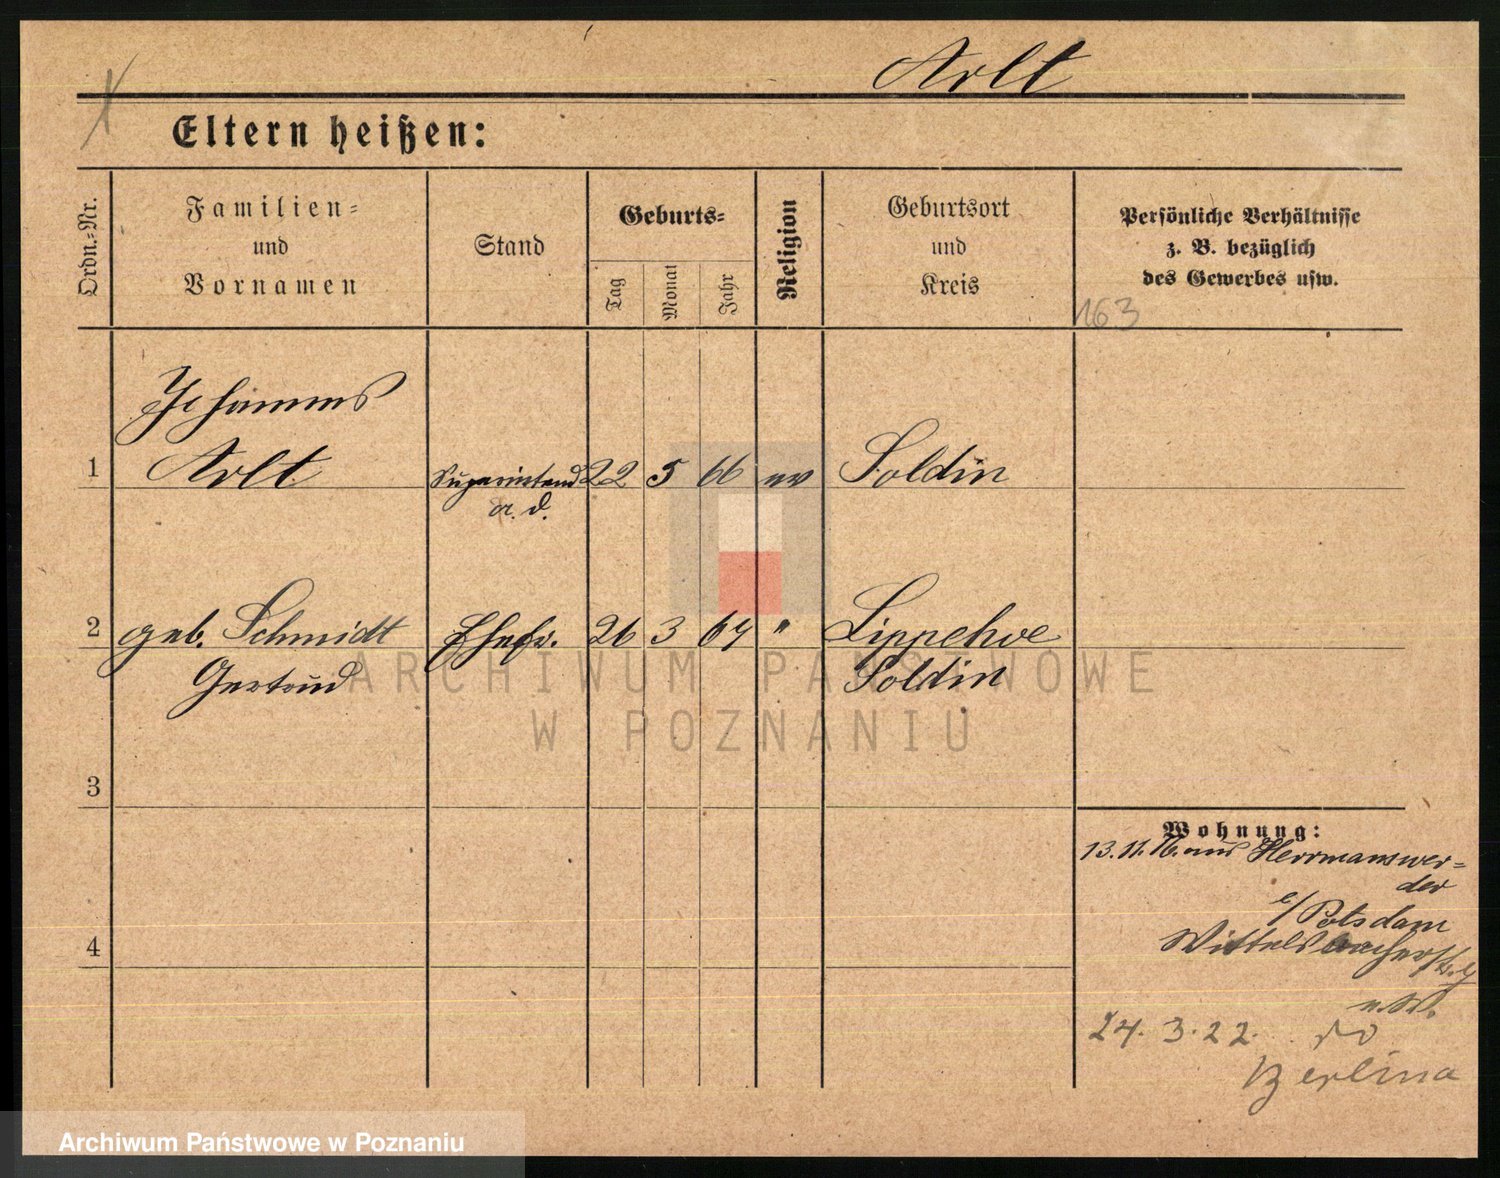 Arlt
Eltern heißen:
Ordn.-Nr.
Familien-
und
Vornamen
Stand
Geburts-
Tag
Monat
Jahr
Religion
Geburtsort
und
Kreis
Persönliche Verhältnisse
z. B. bezüglich
des Gewerbes usw.
163
Johannes
1 Arlt Superintend 22 5 66 ev Soldin
a. d.
2 geb. Schmidt Ehefr. 26 3 67 " Lippehne
Gertrud Soldin
ARCHIWUM PAŃSTWOWE
W POZNANIU
3
Wohnung:
13.11.16. aus Herrmanswer-
der
b/Potsdam
4 Wittelsbacherstr. 7
24. 3. 22. do
Berlina
Archiwum Państwowe w Poznaniu